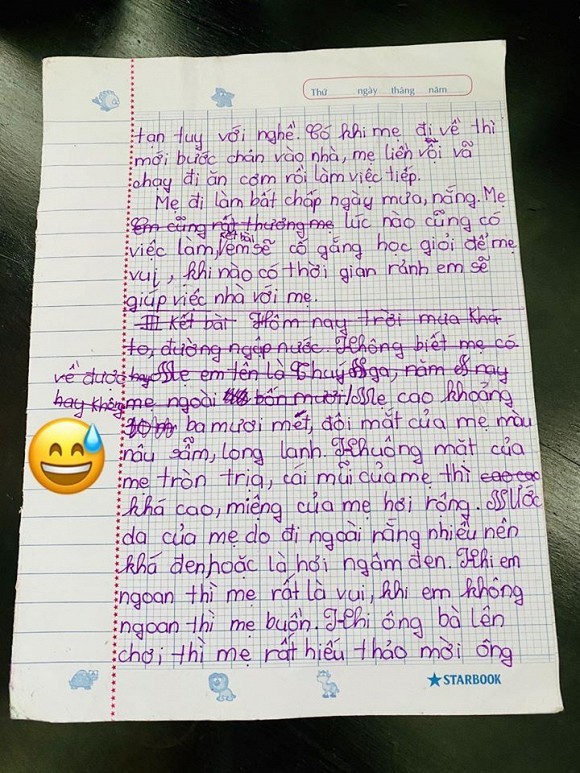 Thứ ngày tháng năm
tan tuy với nghề. Có khi mẹ đi về thì
mới bước chân vào nhà, mẹ liền vội vã
chạy đi ăn cơm rồi làm việc tiếp.
Mẹ đi làm bất chấp ngày mưa, nắng. Mẹ
Em cũng rất thương mẹ lúc nào cũng có
kết bài
việc làm, em sẽ cố gắng học giỏi để mẹ
vui, khi nào có thời gian rảnh em sẽ
giúp việc nhà với mẹ.
III Kết bài Hôm nay trời mưa khá
to, đường ngập nước. Không biết mẹ có
về được hay Mẹ em tên là Thuý Nga, năm nay
hay không mẹ ngoài bốn mươi Mẹ cao khoảng
ba mươi mét, đôi mắt của mẹ màu
nâu sẫm, long lanh. Khuông mặt của
mẹ tròn trịa, cái mũi của mẹ thì cao cao
khá cao, miệng của mẹ hơi rộng. Nước
da của mẹ do đi ngoài nắng nhiều nên
khá đen, hoặc là hơi ngâm đen. Khi em
ngoan thì mẹ rất là vui, khi em không
ngoan thì mẹ buồn. Khi ông bà lên
chơi thì mẹ rất hiếu thảo mời ông
STARBOOK